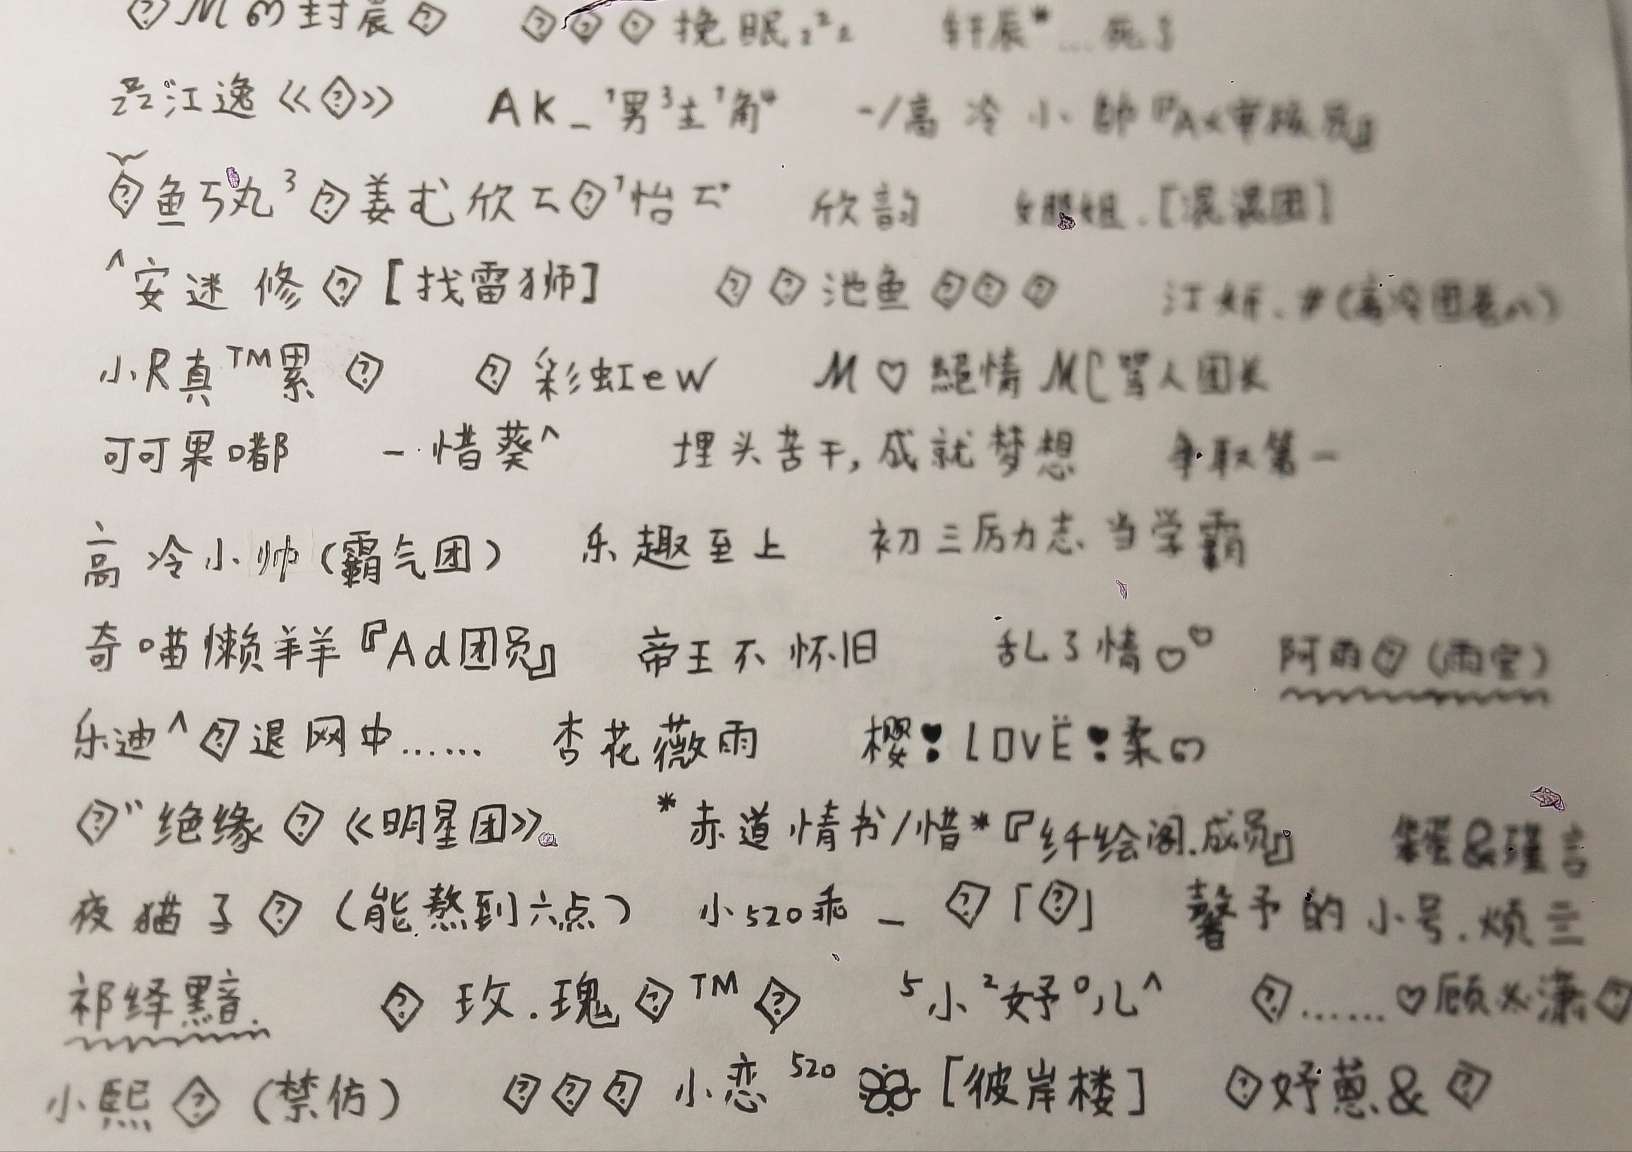 �ℳ๓封宸� ���挽眠₂²₂ 轩辰*…
江逸《�》 AK_¹男³主¹角⁴ -/高冷小帅
�鱼丂丸³�姜 欣�¹怡 欣韵 [混混团]
^安迷修�[找雷狮] ��池鱼���
小R真™累� �彩虹ew ℳ♡絕情 骂人团长
可可果嘟 一惜葵^ 埋头苦干,成就梦想 争取第一
高冷小帅(霸气团) 乐趣至上 初三厉力志当学霸
奇喵懒羊羊『Ad团员』 帝王不怀旧 乱了情♡♡ 阿雨�(雨空)
乐迪^�退网中…… 杏花薇雨 樱❣LOVË❣柔๓
�"绝缘�《明星团》 *赤道情书/惜*『纤绘阁.成员』
夜猫子�(能熬到六点) 小520乖_�「�」 馨予的小号.烦亖
祁绎黑音. �玫.瑰�™� ⁵小²妤⁰儿^ �……♡顾 潇�
小熙�(禁仿) ���小恋⁵²⁰ꕥ[彼岸楼] �妤蔥&�